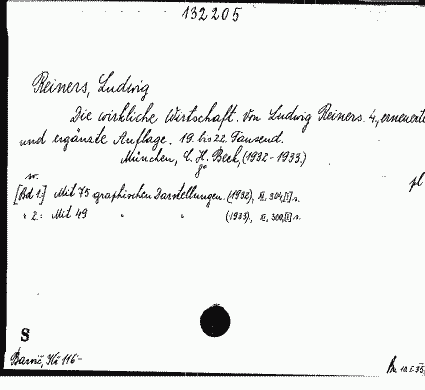 132205
Reiners, Ludwig
Die wirkliche Wirtschaft. Von Ludwig Reiners. 4, erneuerte
und ergänzte Auflage. 19. bis 22. Tausend.
München, C. H. Beck, (1932-1933.)
8°
[Bd 1:] Mit 75 graphischen Darstellungen. (1932), XI, 304, [1] s.
" 2: Mit 49 " " (1933), XI, 300, [1] s.
pl
S